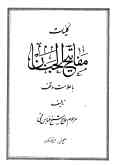 کلیات
مفاتیح الجنان
با علامت وقف
تألیف
مرحوم حاج شیخ عباس قمی